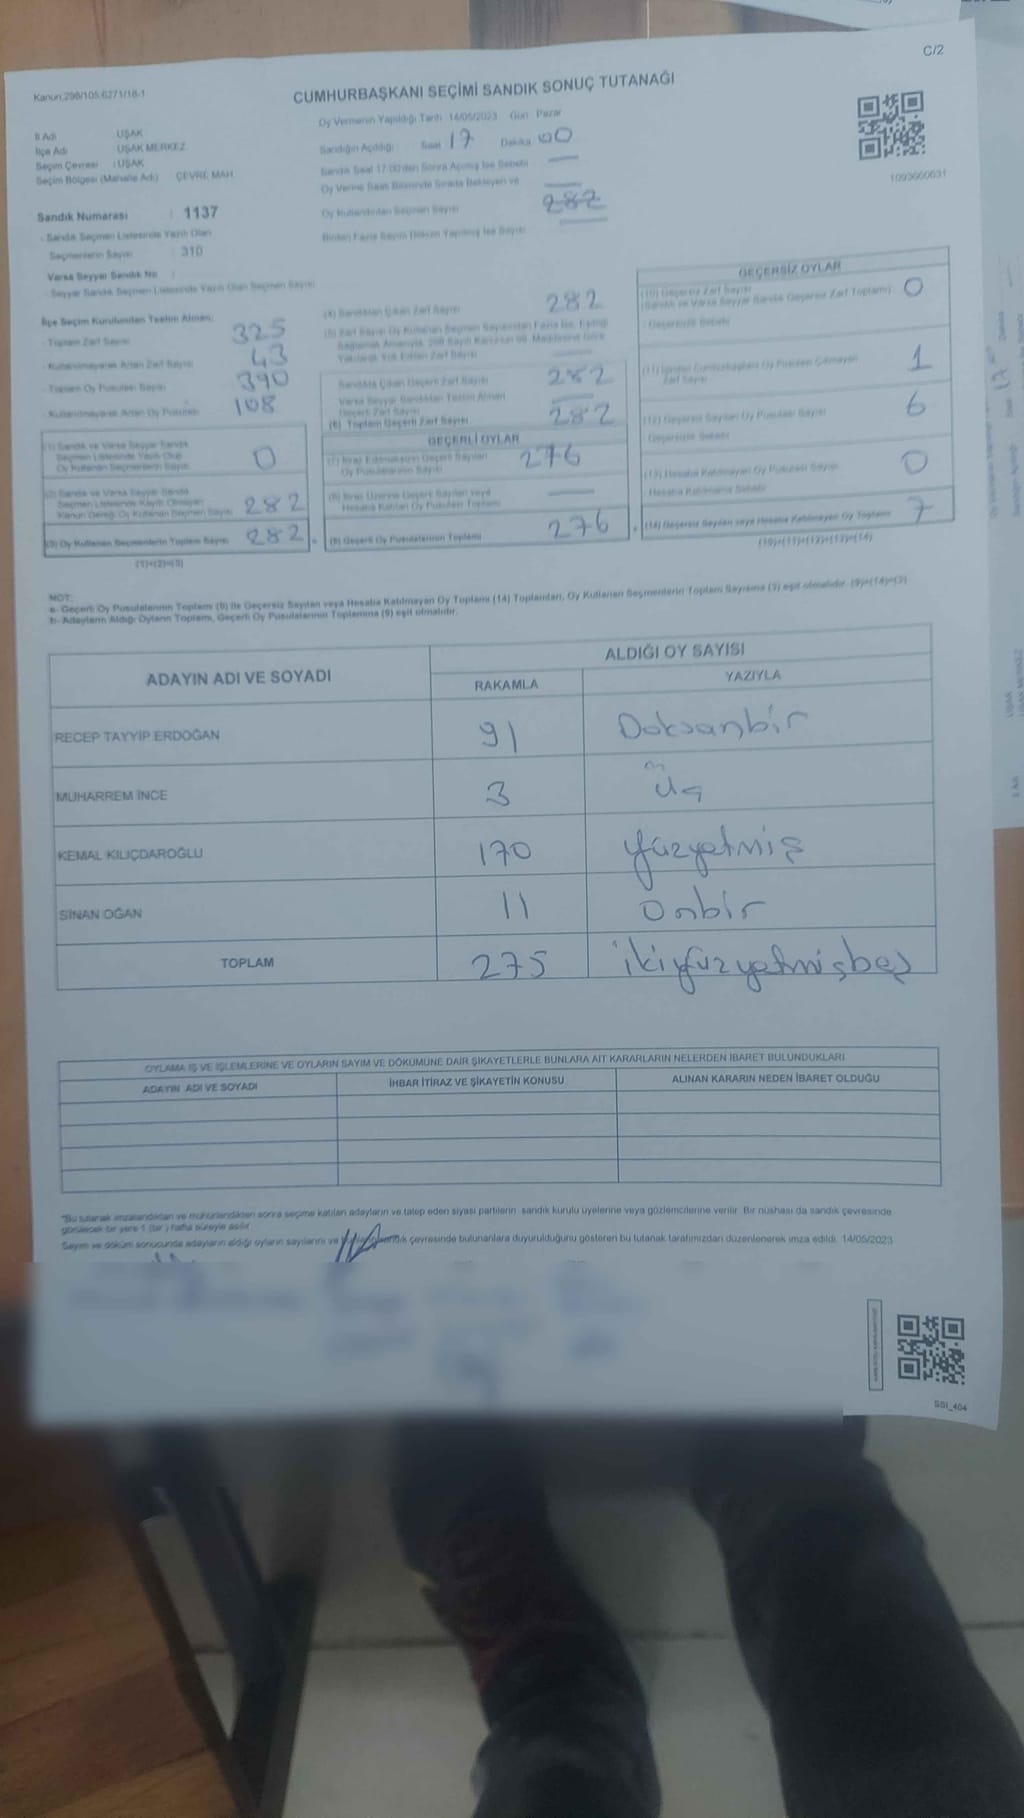 C/2
Kanun:298/105 6271/18-1
CUMHURBAŞKANI SEÇİMİ SANDIK SONUÇ TUTANAĞI
Oy Vermenin Yapıldığı Tarih 14/05/2023 Gün Pazar
İl Adı UŞAK
İlçe Adı UŞAK MERKEZ
Seçim Çevresi : UŞAK
Seçim Bölgesi (Mahalle Adı) ÇEVRE MAH.
Sandığın Açıldığı Saat 17 Dakika 00
Sandık Saat 17:00'den Sonra Açılmış İse Sebebi
Oy Verme Saati Bitiminde Sırada Bekleyen ve
Oy Kullandırılan Seçmen Sayısı 282
Birden Fazla Sayım Döküm Yapılmış İse Sayısı
1093600031
Sandık Numarası : 1137
- Sandık Seçmen Listesinde Yazılı Olan
Seçmenlerin Sayısı : 310
Varsa Seyyar Sandık No :
- Seyyar Sandık Seçmen Listesinde Yazılı Olan Seçmen Sayısı
İlçe Seçim Kurulundan Teslim Alınan;
- Toplam Zarf Sayısı 325
- Kullanılmayarak Artan Zarf Sayısı 43
- Toplam Oy Pusulası Sayısı 390
- Kullanılmayarak Artan Oy Pusulası 108
(1) Sandık ve Varsa Seyyar Sandık
Seçmen Listesinde Yazılı Olup
Oy Kullanan Seçmenlerin Sayısı 0
(2) Sandık ve Varsa Seyyar Sandık
Seçmen Listesinde Kayıtlı Olmayan
Kanun Gereği Oy Kullanan Seçmen Sayısı 282
(3) Oy Kullanan Seçmenlerin Toplam Sayısı 282
(1)+(2)=(3)
(4) Sandıktan Çıkan Zarf Sayısı 282
(5) Zarf Sayısı Oy Kullanan Seçmen Sayısından Fazla İse, Eşitliği
Sağlamak Amacıyla, 298 Sayılı Kanun'un 98. Maddesine Göre
Yakılarak Yok Edilen Zarf Sayısı
Sandıkta Çıkan Geçerli Zarf Sayısı 282
Varsa Seyyar Sandıktan Teslim Alınan
Geçerli Zarf Sayısı
(6) Toplam Geçerli Zarf Sayısı 282
GEÇERLİ OYLAR
(7) İtiraz Edilmeksizin Geçerli Sayılan
Oy Pusulalarının Sayısı 276
(8) İtiraz Üzerine Geçerli Sayılan veya
Hesaba Katılan Oy Pusulası Toplamı
(9) Geçerli Oy Pusulalarının Toplamı 276
GEÇERSİZ OYLAR
(10) Geçersiz Zarf Sayısı
(Sandık ve Varsa Seyyar Sandık Geçersiz Zarf Toplamı) 0
- Geçersizlik Sebebi
(11) İçinden Cumhurbaşkanı Oy Pusulası Çıkmayan
Zarf Sayısı 1
(12) Geçersiz Sayılan Oy Pusulası Sayısı 6
- Geçersizlik Sebebi
(13) Hesaba Katılmayan Oy Pusulası Sayısı 0
Hesaba Katılmama Sebebi
(14) Geçersiz Sayılan veya Hesaba Katılmayan Oy Toplamı 7
(10)+(11)+(12)+(13)=(14)
NOT:
a- Geçerli Oy Pusulalarının Toplamı (9) ile Geçersiz Sayılan veya Hesaba Katılmayan Oy Toplamı (14) Toplamları, Oy Kullanan Seçmenlerin Toplam Sayısına (3) eşit olmalıdır. (9)+(14)=(3)
b- Adayların Aldığı Oyların Toplamı, Geçerli Oy Pusulalarının Toplamına (9) eşit olmalıdır.
ADAYIN ADI VE SOYADI
ALDIĞI OY SAYISI
RAKAMLA YAZIYLA
RECEP TAYYİP ERDOĞAN 91 Doksanbir
MUHARREM İNCE 3 Üç
KEMAL KILIÇDAROĞLU 170 Yüzyetmiş
SİNAN OĞAN 11 Onbir
TOPLAM 275 ikiyüzyetmişbeş
OYLAMA İŞ VE İŞLEMLERİNE VE OYLARIN SAYIM VE DÖKÜMÜNE DAİR ŞİKAYETLERLE BUNLARA AİT KARARLARIN NELERDEN İBARET BULUNDUKLARI
ADAYIN ADI VE SOYADI İHBAR İTİRAZ VE ŞİKAYETİN KONUSU ALINAN KARARIN NEDEN İBARET OLDUĞU
"Bu tutanak imzalandıktan ve mühürlendikten sonra seçime katılan adayların ve talep eden siyasi partilerin sandık kurulu üyelerine veya gözlemcilerine verilir. Bir nüshası da sandık çevresinde
görülecek bir yere 1 (bir) hafta süreyle asılır.
Sayım ve döküm sonucunda adayların aldığı oyların sayılarını ve sandık çevresinde bulunanlara duyurulduğunu gösteren bu tutanak tarafımızdan düzenlenerek imza edildi. 14/05/2023
SSI_404